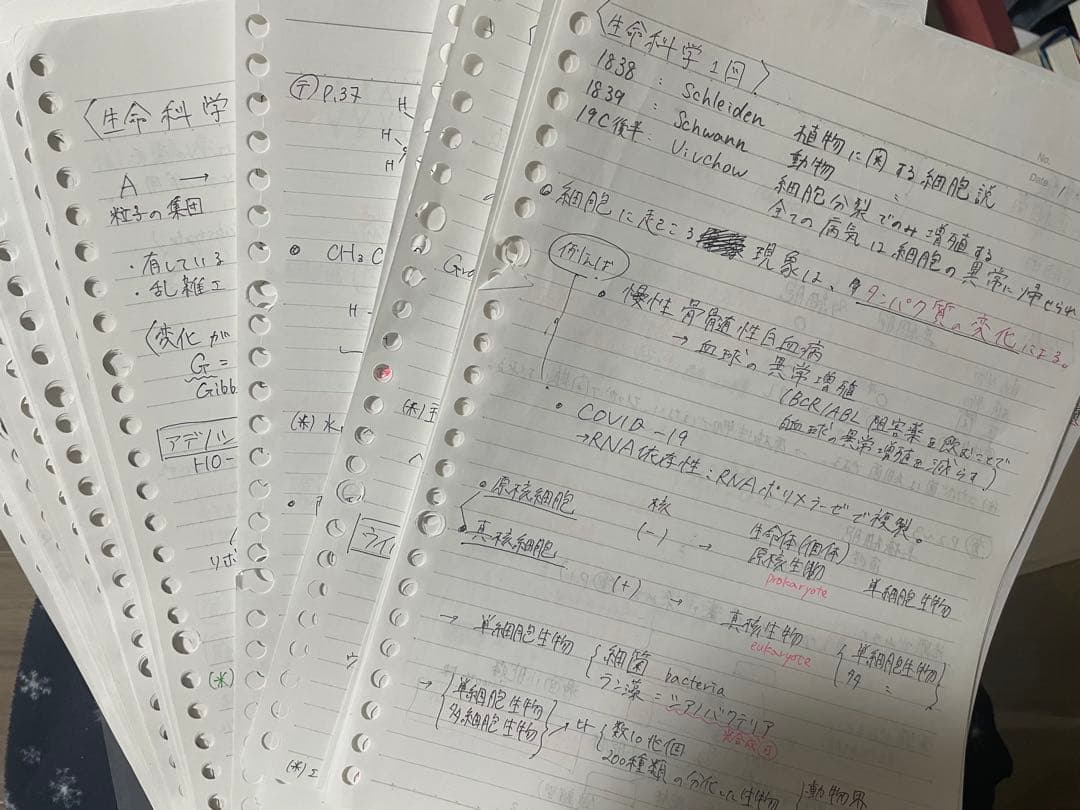 〈生命科学1回〉
1838 : Schleiden 植物に関する細胞説
1839 : Schwann 動物 〃
19C後半 : Virchow 細胞分裂でのみ増殖する
全ての病気は細胞の異常に帰せられ
・細胞に起こる 現象は、タンパク質の変化による。
例えば
・慢性骨髄性白血病
→血球の異常増殖
(BCR/ABL阻害薬を飲むことで
白血球の異常増殖を減らす)
・COVID-19
→RNA依存性:RNAポリメラーゼで複製。
核 生命体(個体)
・原核細胞 (-) → 原核生物 単細胞生物
prokaryote
・真核細胞 (+) → 真核生物 {単細胞生物
eukaryote 多 〃 }
→ 単細胞生物 {細菌 bacteria
ラン藻 = シアノバクテリア
光合成 可
→ {単細胞生物
多細胞生物} → ヒト {数10兆個
200種類の分化した生物
{動物界
No.
Date
〈生命科学
A →
粒子の集団
・有している
・乱雑エ
〈変化が
G =
Gibb
アデノシ
HO-
リボ
(*)
Ⓣ P.37
H
H
H
・CH3C
H-
(*) 水
(*) エ